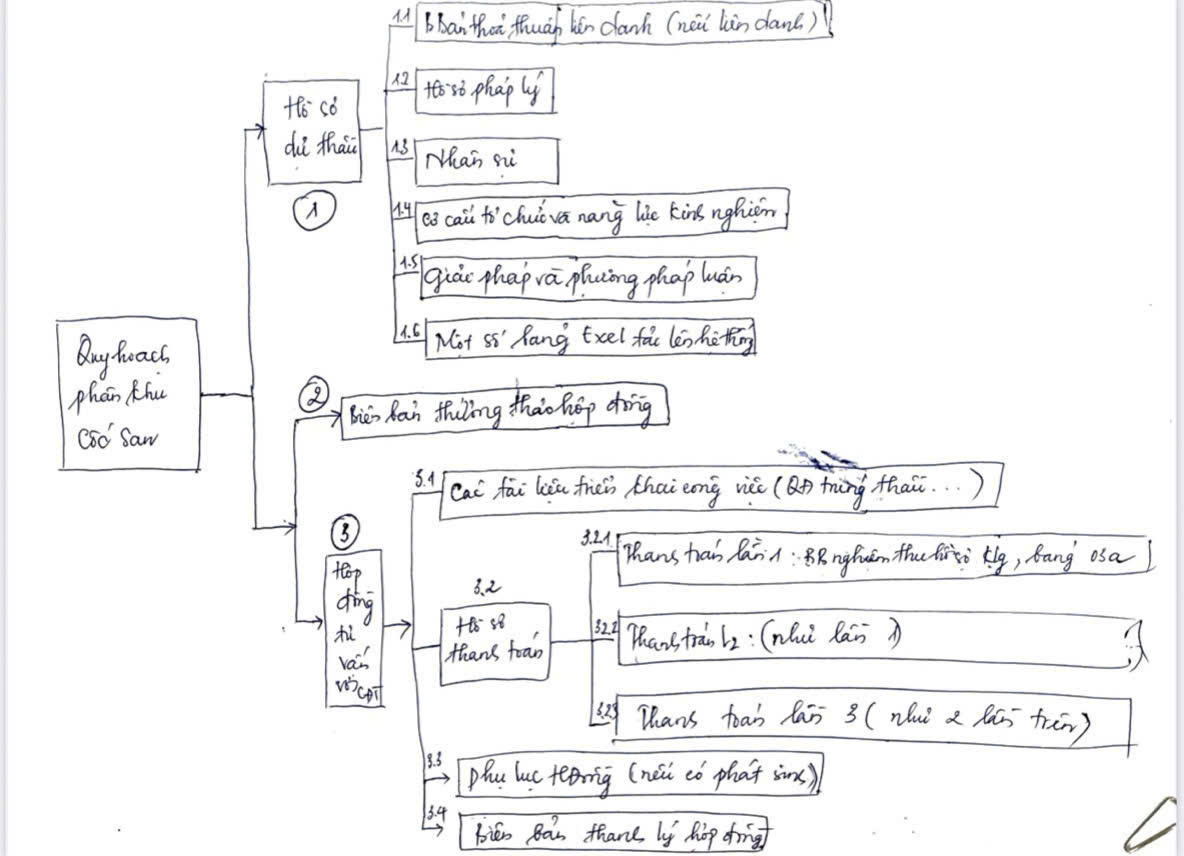 Quy hoạch
phân khu
Cốc San
Hồ sơ
dự thầu
1
1.1
BBản thoả thuận liên danh (nếu liên danh)
1.2
Hồ sơ pháp lý
1.3
Nhân sự
1.4
Cơ cấu tổ chức và năng lực kinh nghiệm
1.5
Giải pháp và phương pháp luận
1.6
Một số bảng Excel tải lên hệ thống
2
Biên bản thương thảo hợp đồng
3
Hợp
đồng
tư
vấn
với CĐT
3.1
Các tài liệu triển khai công việc (QĐ trúng thầu...)
3.2
Hồ sơ
thanh toán
3.2.1
Thanh toán lần 1: BB nghiệm thu hồ sơ klg, bảng 03a
3.2.2
Thanh toán L2: (như lần 1)
3.2.3
Thanh toán lần 3 (như 2 lần trên)
3.3
Phụ lục HĐồng (nếu có phát sinh)
3.4
Biên bản thanh lý hợp đồng